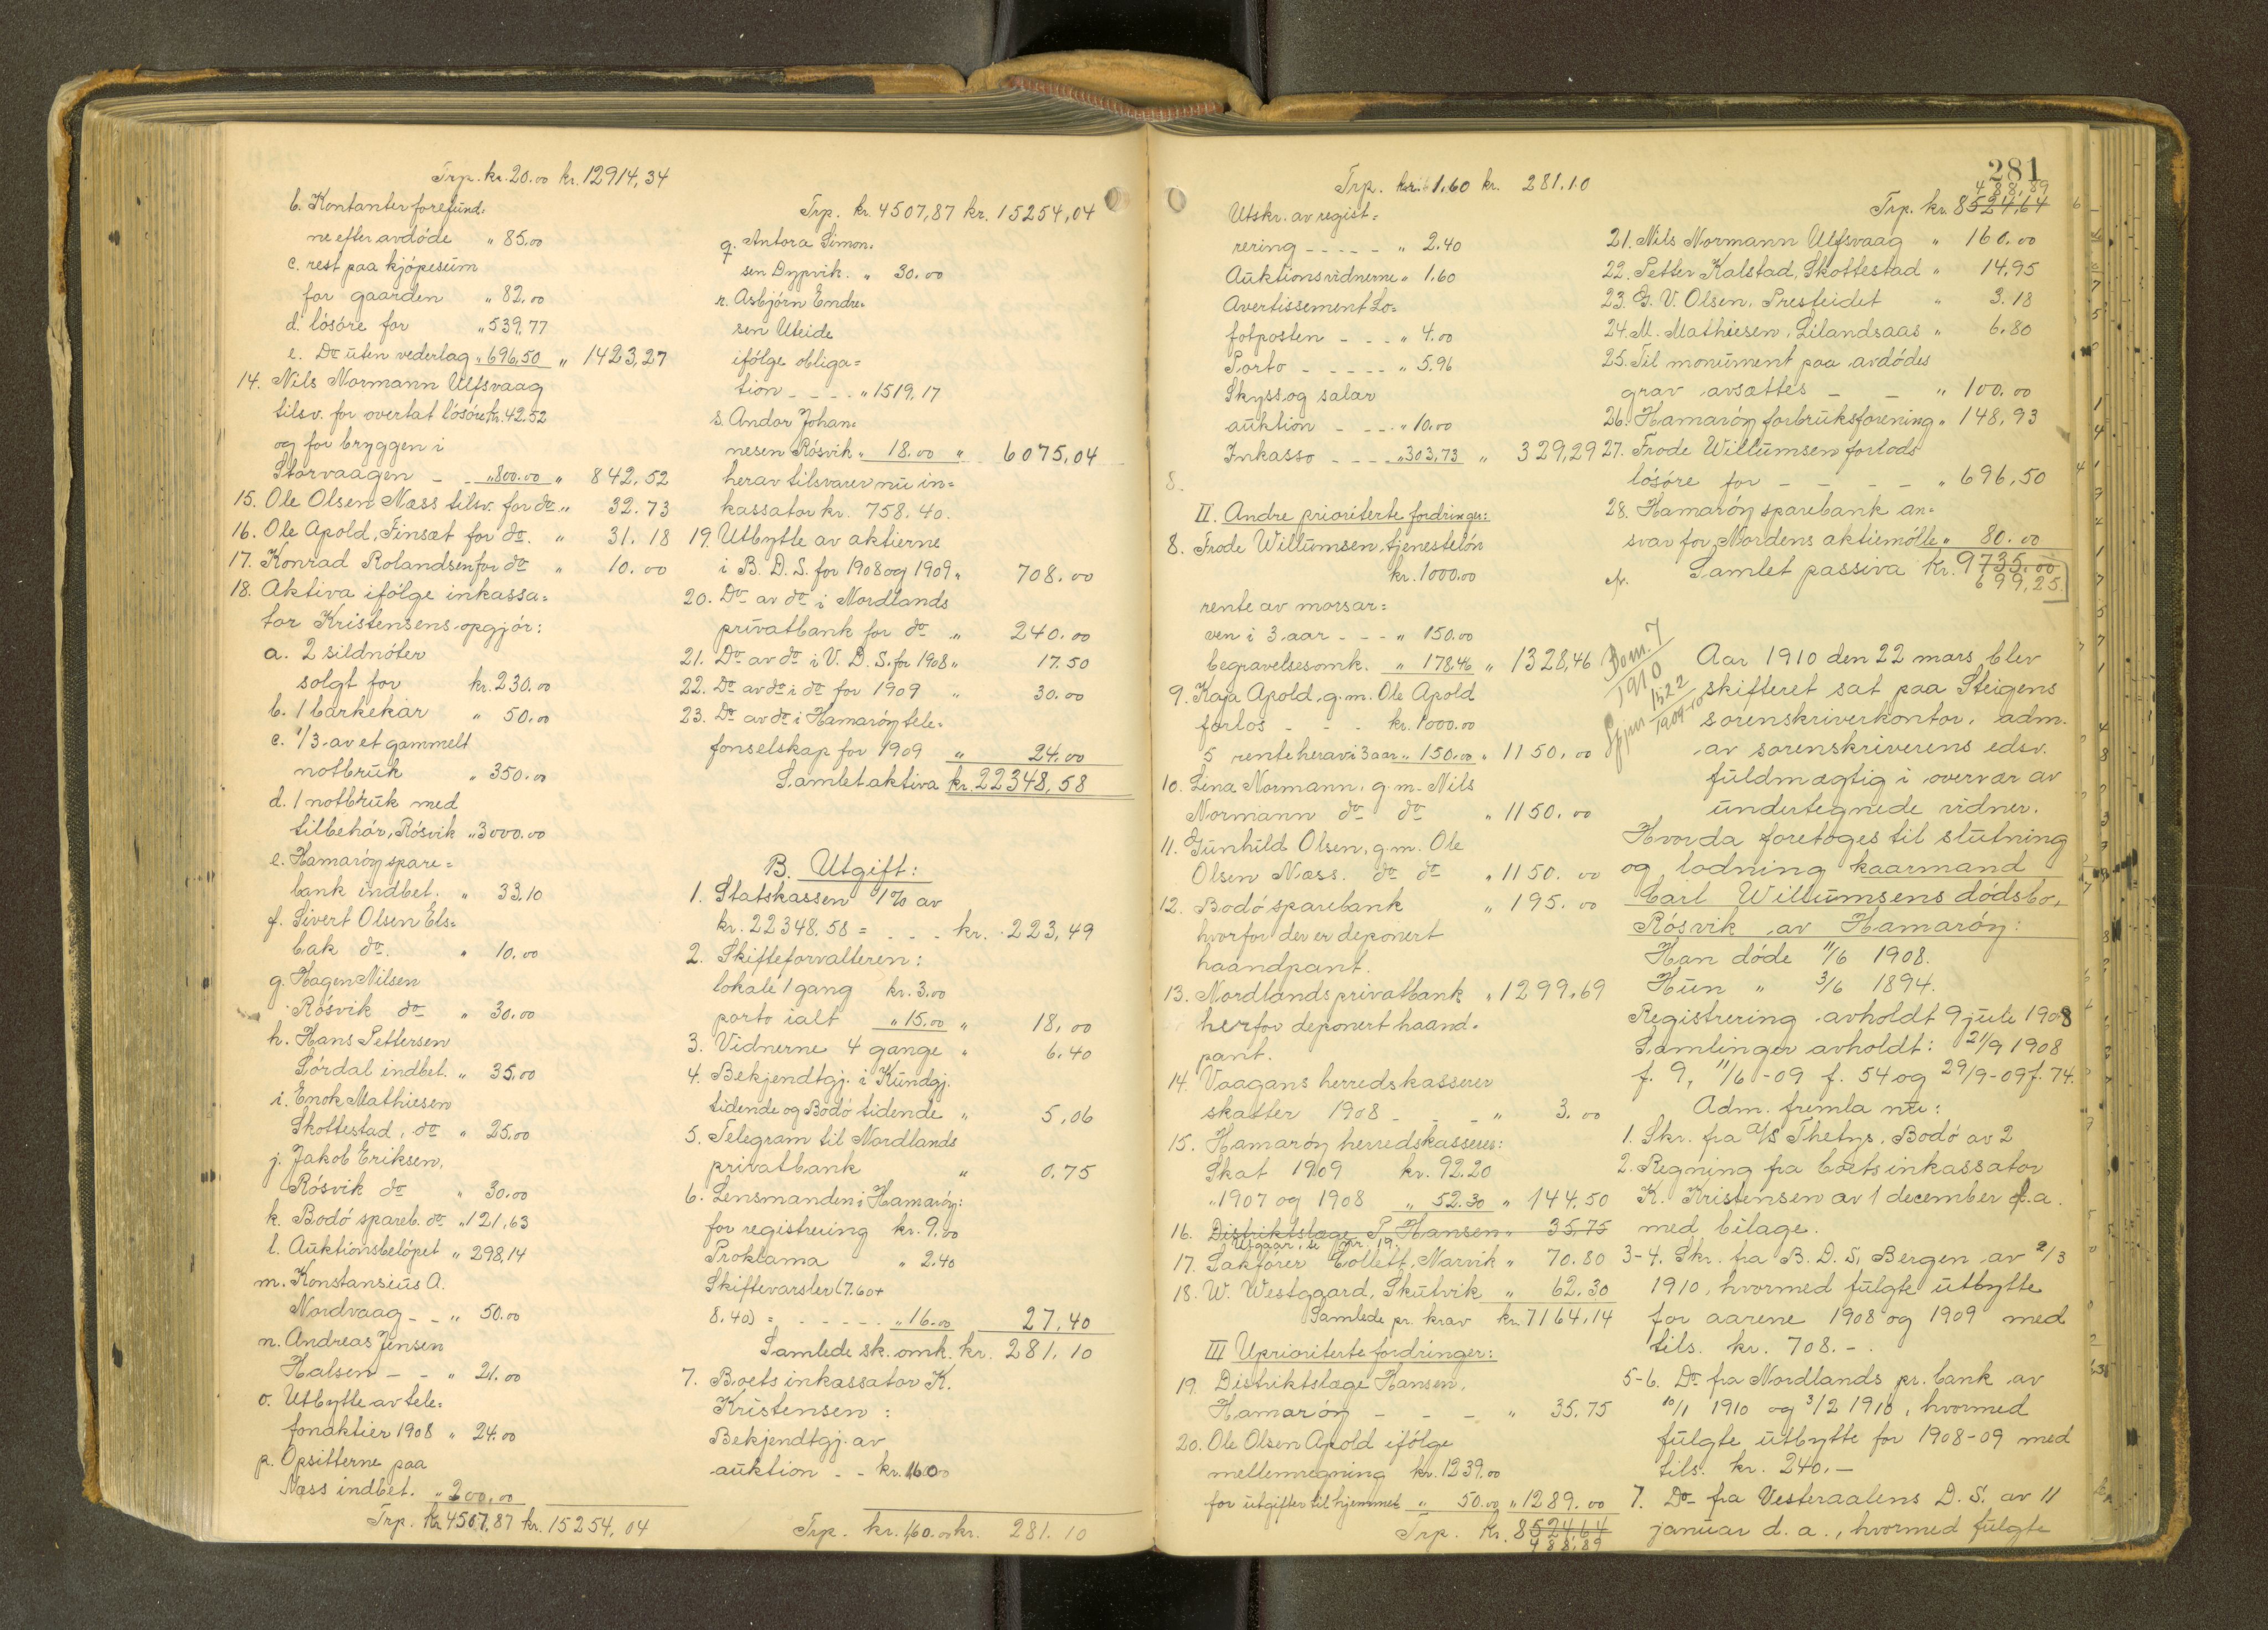 Trp. kr. 20.00 kr. 12914,34
b. Kontanter forefund=
ne efter avdøde " 85.00
c. rest paa kjøpesum
for gaarden " 82.00
d. løsøre for " 539.77
e. Do uten vederlag " 696,50 " 1423,27
14. Nils Normann Ulfsvaag
tilsv. for overtat løsøre kr. 42.52
og for bryggen i
Storvaagen - - " 800.00 " 842,52
15. Ole Olsen Næss tilsv. for do " 32.73
16. Ole Apold, Finsæt for do. " 31.18
17. Konrad Rolandsen for do " 10.00
18. Aktiva ifølge inkassa=
tor Kristensens opgjør:
a. 2 sildnøter
solgt for kr. 230.00
b. 1 barkekar " 50.00
c. 1/3 av et gammelt
notbruk " 350.00
d. 1 notbruk med
tilbehør, Røsvik " 3000.00
e. Hamarøy spare=
bank indbet. " 33,10
f. Sivert Olsen Els=
bak do. " 10.00
g. Hagen Nilsen
Røsvik do " 30.00
h. Hans Pettersen
Sørdal indbet. " 35.00
i. Enok Mathiesen
Skottestad, do " 25.00
j. Jakob Eriksen,
Røsvik do " 30.00
k. Bodø spareb. do. " 121,63
l. Auktionsbeløpet " 298,14
m. Konstansius A.
Nordvaag - - " 50.00
n. Andreas Jensen
Halsen - - " 21.00
o. Utbytte av tele=
fonaktier 1908 " 24.00
p. Opsitterne paa
Næss indbet. " 200,00
Trp. kr. 4507,87 kr. 15254,04
Trp. kr. 4507,87 kr. 15254,04
q. Antora Simon=
sen Dypvik. " 30.00
r. Asbjørn Endre=
sen Uteide
ifølge obliga=
tion - - - . " 1519,17
s. Andor Johan=
nesen Røsvik " 18.00 " 6075,04
herav tilsvarer nu in=
kassator kr. 758.40.
19. Utbytte av aktierne
i B. D. S. for 1908 og 1909 " 708.00
20. Do av do i Nordlands
privatbank for do " 240.00
21. Do av do i V. D. S. for 1908 " 17.50
22. Do av do i do for 1909 " 30.00
23. Do av do i Hamarøy tele=
fonselskap for 1909 " 24.00
Samlet aktiva kr. 22348,58
B. Utgift:
1. Statskassen 1% av
kr. 22348.58 = - - - kr. 223,49
2. Skifteforvalteren:
lokale 1 gang kr. 3.00
porto ialt " 15.00 " 18,00
3. Vidnerne 4 gange " 6.40
4. Bekjendtgj. i Kundgj.
tidende og Bodø tidende " 5,06
5. Telegram til Nordlands
privatbank " 0.75
6. Lensmanden i Hamarøy:
for registrering kr. 9.00
Proklama " 2.40
Skiftevarsler (7.60+
8.40) = - - - - - " 16.00 27,40
Samlede sk. omk. kr. 281,10
7. Boets inkassator K.
Kristensen:
Bekjendtgj. av
auktion - - kr. 1.60
Trp. kr. 1.60 kr. 281.10
281
Trp. kr. 1.60 kr. 281.10
Utskr. av regist=
rering - - - - - " 2.40
Auktionsvidnerne " 1.60
Avertissement Lo=
fotposten - - - " 4.00
Porto - - - - - " 5.96
Skyss og salær
auktion - - - - " 10.00
Inkasso - - - - " 303,73 " 329,29
8.
II. Andre prioriterte fordringer:
8. Frode Willumsen, tjenesteløn
kr. 1000.00
rente av morsar=
ven i 3 aar - - - " 150.00
begravelsesomk. " 178.46 " 1328,46
9. Kaja Apold, g.m. Ole Apold
forlos - - - kr. 1000.00
5 rente herav i 3 aar " 150.00 " 1150.00
10. Lina Normann, g.m. Nils
Normann do do " 1150.00
11. Gunhild Olsen, g.m. Ole
Olsen Næss. do do " 1150.00
12. Bodø sparebank " 195.00
hvorfor der er deponert
haandpant.
13. Nordlands privatbank " 1299.69
herfor deponert haand=
pant.
14. Vaagans herredskasserer
skatter 1908 - - - " 3.00
15. Hamarøy herredskasserer:
Skat 1909 kr. 92.20
" 1907 og 1908 " 52.30 " 144.50
16. Distriktslæge P. Hansen " 35.75
Utgaar, se nr. 19.
17. Sakfører Collett, Narvik " 70.80
18. W. Westgaard, Skutvik " 62.30
Samlede pr. krav kr. 7164,14
III Uprioriterte fordringer:
19. Distriktslæge Hansen,
Hamarøy - - - " 35.75
20. Ole Olsen Apold ifølge
mellemregning kr. 1239.00
for utgifter til hjemmet " 50.00 " 1289.00
Trp. kr. 8524,64
488,89
488,89
Trp. kr. 8524,64
21. Nils Normann Ulfsvaag " 160.00
22. Petter Kalstad, Skottestad " 14,95
23. G. V. Olsen, Presteidet " 3.18
24. M. Mathiesen, Lilandsaas " 6.80
25. Til monument paa avdødes
grav avsættes - - " 100.00
26. Hamarøy forbruksforening " 148,93
27. Frode Willumsen forlods
løsøre for - - - - " 696,50
28. Hamarøy sparebank an=
svar for Nordens aktiemølle " 80.00
Samlet passiva kr. 9735.00
699,25
Dom. 7
1910
1909-10
Aar 1910 den 22 mars blev
skifteret sat paa Steigens
sorenskriverkontor, adm.
av sorenskriverens edsv.
fuldmægtig i overvær av
undertegnede vidner.
Hvorda foretoges til slutning
og lodning kaarmand
Carl Willumsens dødsbo,
Røsvik av Hamarøy:
Han døde 11/6 1908.
Hun " 3/6 1894.
Registrering avholdt 9 juli 1908
Samlinger avholdt: 21/9 1908
f. 9, 11/6-09 f. 54 og 29/9-09 f. 74.
Adm. fremla nu:
1. Skr. fra A/S Thetys, Bodø av 2
2. Regning fra boets inkassator
K. Kristensen av 1 december f.a.
med bilage.
3-4. Skr. fra B. D. S, Bergen av 2/3
1910, hvormed fulgte utbytte
for aarene 1908 og 1909 med
tils. kr. 708.-.
5-6. Do fra Nordlands pr. bank av
10/1 1910 og 3/2 1910, hvormed
fulgte utbytte for 1908-09 med
tils. kr. 240.-
7. Do fra Vesteraalens D. S. av 11
januar d. a., hvormed fulgte